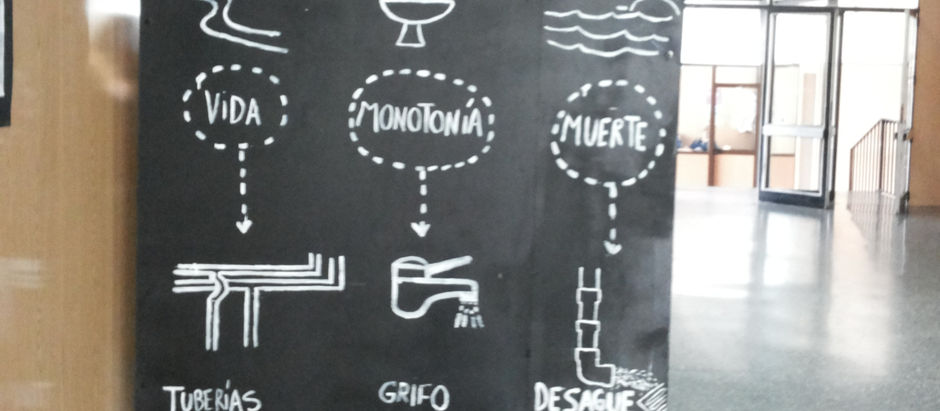 VIDA MONOTONÍA MUERTE
TUBERÍAS GRIFO DESAGUE